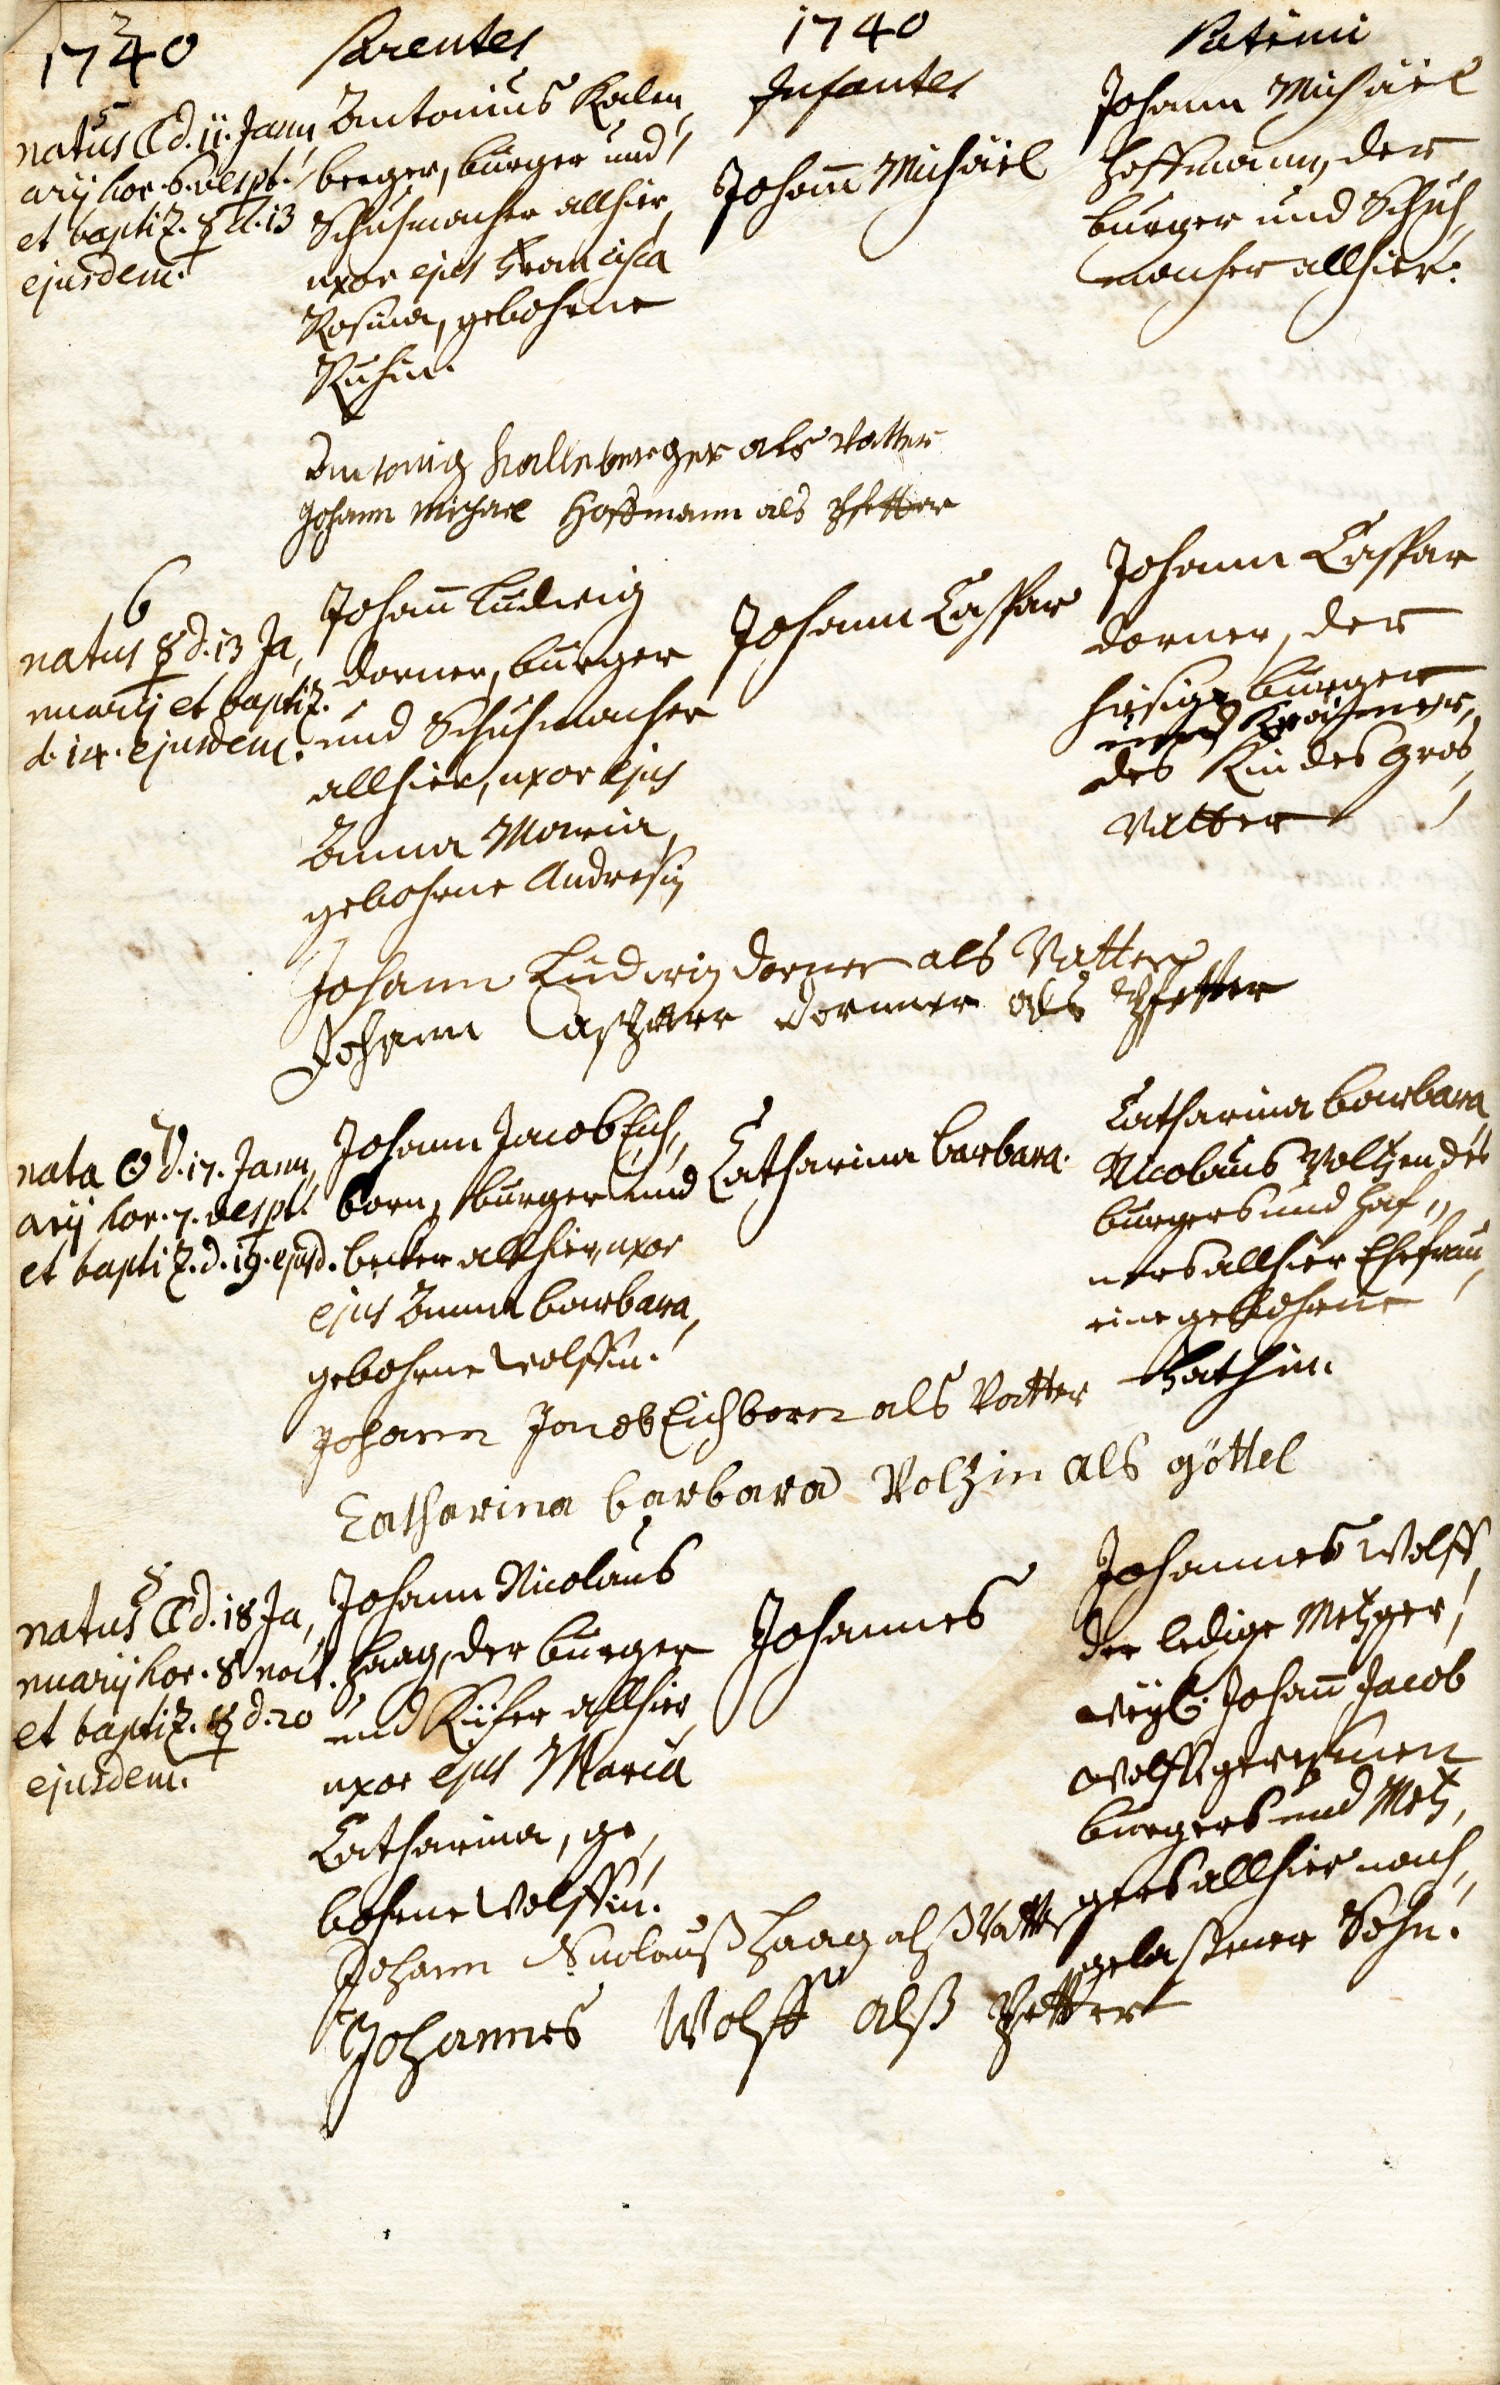 2
1740
Parentes
1740
Infantes
Patrini
5
natus ☾ d. 11. Janu,
arij hor. 6. vespt.
et baptiz. ☿ d. 13
ejusdem.
Antonius Kalen,
berger, burger und
Schuhmacher allhier,
uxor ejus Francisca
Rosina, gebohrne
Kuhin.
Johañ Michäel
Johann Michäel
Hoffmann, der
burger und Schuh,
macher allhier.
Antonig Kallenberger als Vatter
Johann Michael Hoffmann als Pfetter
6
natus ☿ d. 13 Ja,
nuarij et baptiz.
d. 14. ejusdem.
Johañ Ludwig
Dorner, burger
und Schuhmacher
allhier, uxor ejus
Anna Maria,
gebohrne Andresin
Johann Caspar
Johann Caspar
Dorner, der
hiesige burger
und Krämer,
des Kindes Gros,
Vatter
Johann Ludwig Dorner als Vatter
Johann Casper Dornner als Pfetter
7
nata ☉ d. 17. Janu,
arij hor. 7. vespt.
et baptiz. d. 19. ejusd.
Johann Jacob Eich,
born, burger und
becker allhier, uxor
ejus Anna barbara,
gebohrne Wolffin.
Catharina barbara.
Catharina barbara,
Nicolaus Voltzen des
burgers und Haf,,
ners allhier Ehefrau,
eine gebohrne
Johann Jacob Eichborn als Vatter
Catharina barbara Voltzin als göttel
8
natus ☾ d. 18 Ja,
nuarij hor. 8 noct.
et baptiz. ☿ d. 20
ejusdem.
Johann Nicolaus
Haag, der burger
und Küfer allhier
uxor ejus Maria
Catharina, ge,
bohrne Wolffin.
Johannes
Johannes Wolff,
der ledige Metzger,
weyl. Johañ Jacob
Wolffs gewesenen
burgers und Metz,
gers allhier nach,
gelassener Sohn.
Johann Nicolauß Haag alß Vatter
Johannes Wolff alß Pfetter